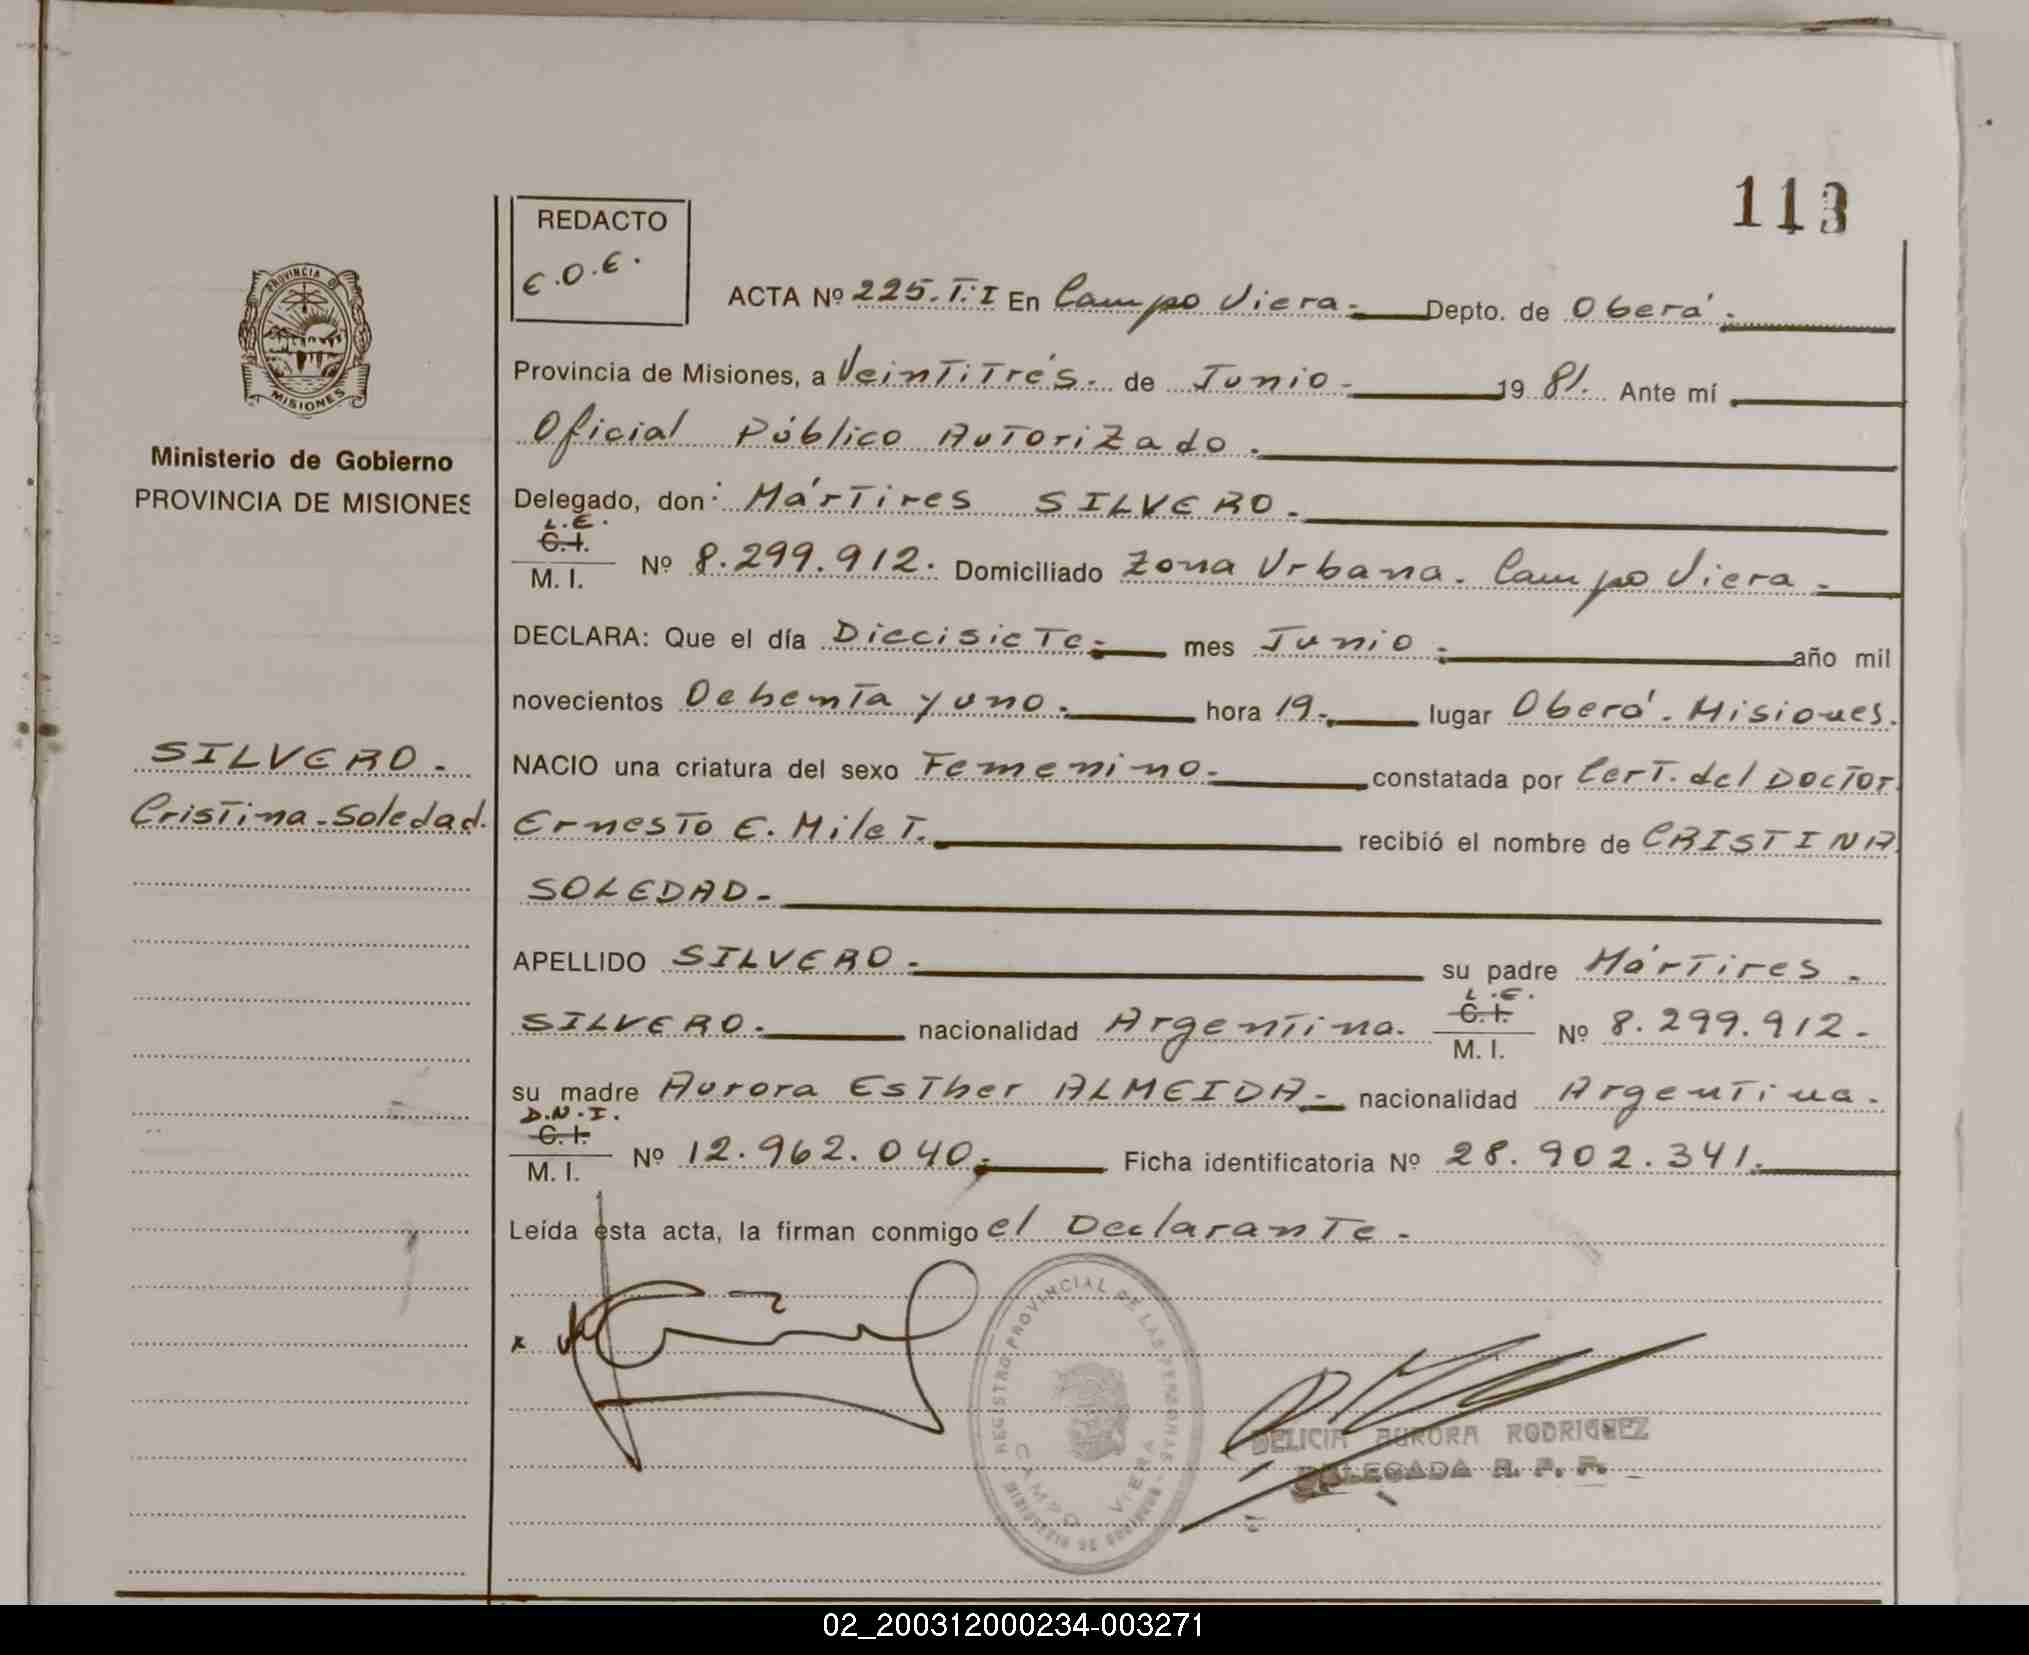 113
REDACTO
E.O.E.
ACTA Nº 225. T: I En Campo Viera.- Depto. de Oberá.-
Provincia de Misiones, a Veintitrés.- de Junio.- 19 81. Ante mí
Oficial Público Autorizado.-
Delegado, don: Mártires SILVERO.-
L.E.
C.I.
M. I. Nº 8.299.912. Domiciliado Zona Urbana. Campo Viera.-
DECLARA: Que el día Diecisiete.- mes Junio.- año mil
novecientos Ochenta y uno.- hora 19.- lugar Oberá. Misiones.
NACIO una criatura del sexo Femenino.- constatada por Cert. del DOCTOR
Ernesto E. Milet.- recibió el nombre de CRISTINA
SOLEDAD.-
APELLIDO SILVERO.- su padre Mártires.-
SILVERO.- nacionalidad Argentina.
L.E.
C.I.
M. I. Nº 8.299.912.-
su madre Aurora Esther ALMEIDA.- nacionalidad Argentina.-
D.N.I.
C.I.
M. I. Nº 12.962.040.- Ficha identificatoria Nº 28.902.341.-
Leída esta acta, la firman conmigo el Declarante.-
PROVINCIA DE
MISIONES
Ministerio de Gobierno
PROVINCIA DE MISIONES
SILVERO.-
Cristina-Soledad.
REGISTRO PROVINCIAL DE LAS PERSONAS
CAMPO VIERA
DELICIA AURORA RODRIGUEZ
DELEGADA R. P. P.
02_200312000234-003271